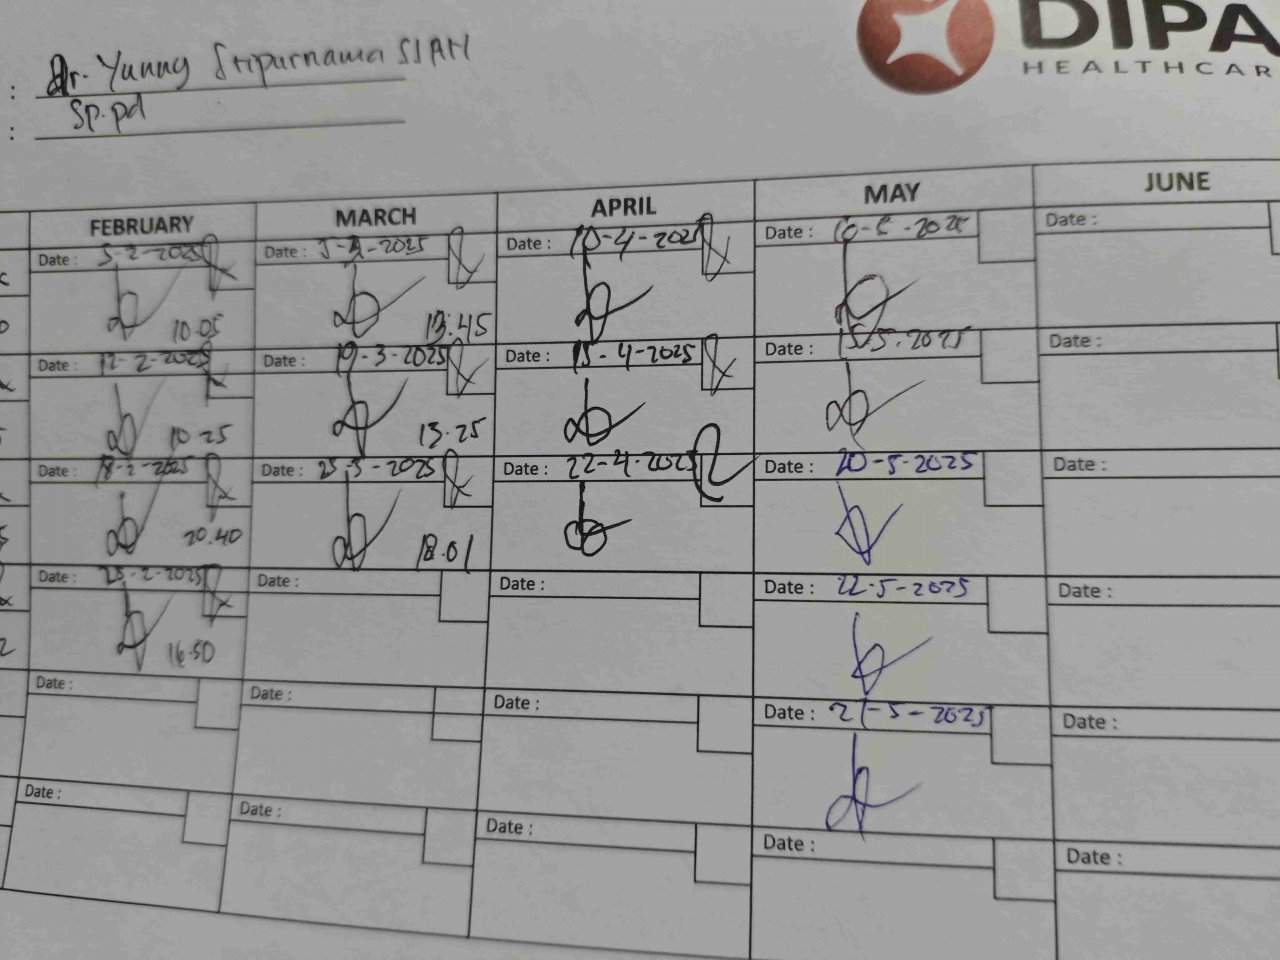 DIPA
HEALTHCAR
: Dr. Yunny Sripurnama SIAH
: Sp.pd
FEBRUARY MARCH APRIL MAY JUNE
Date : 5-2-2025 Date : 5-3-2025 Date : 10-4-2025 Date : 10-5-2025 Date :
10.05 13.45
Date : 12-2-2025 Date : 19-3-2025 Date : 15-4-2025 Date : 15-5-2025 Date :
10-25 13.25
Date : 18-2-2025 Date : 25-3-2025 Date : 22-4-2025 Date : 20-5-2025 Date :
20.40 18.01
Date : 25-2-2025 Date : Date : Date : 22-5-2025 Date :
16.50
Date : Date : Date : Date : 21-5-2025 Date :
Date : Date : Date : Date : Date :